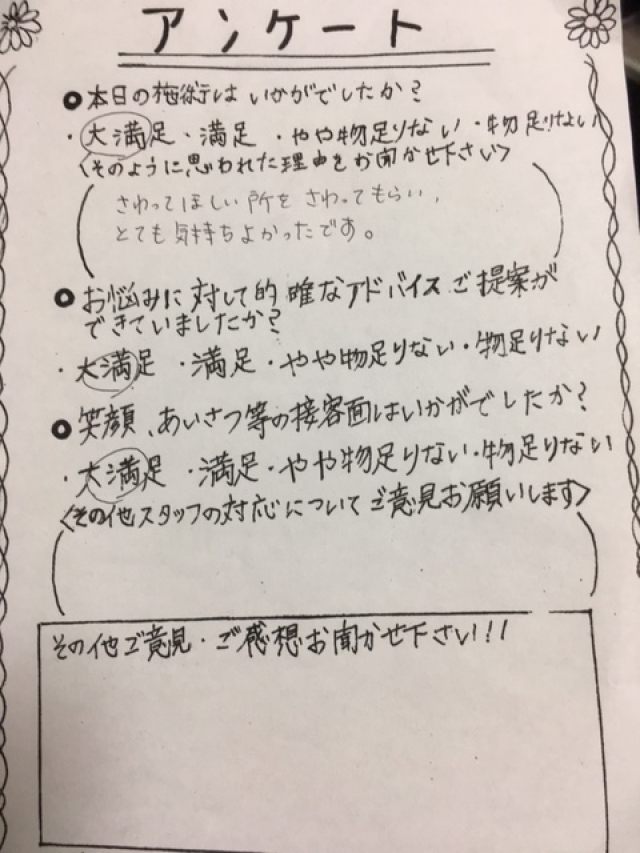 アンケート
本日の施術はいかがでしたか?
・大満足・満足・やや物足りない・物足りない
〈そのように思われた理由をお聞かせ下さい〉
さわってほしい所をさわってもらい、
とても気持ちよかったです。
お悩みに対して的確なアドバイスご提案が
できていましたか?
・大満足・満足・やや物足りない・物足りない
笑顔、あいさつ等の接客面はいかがでしたか?
・大満足・満足・やや物足りない・物足りない
〈その他スタッフの対応についてご意見お願いします〉
その他ご意見・ご感想お聞かせ下さい!!